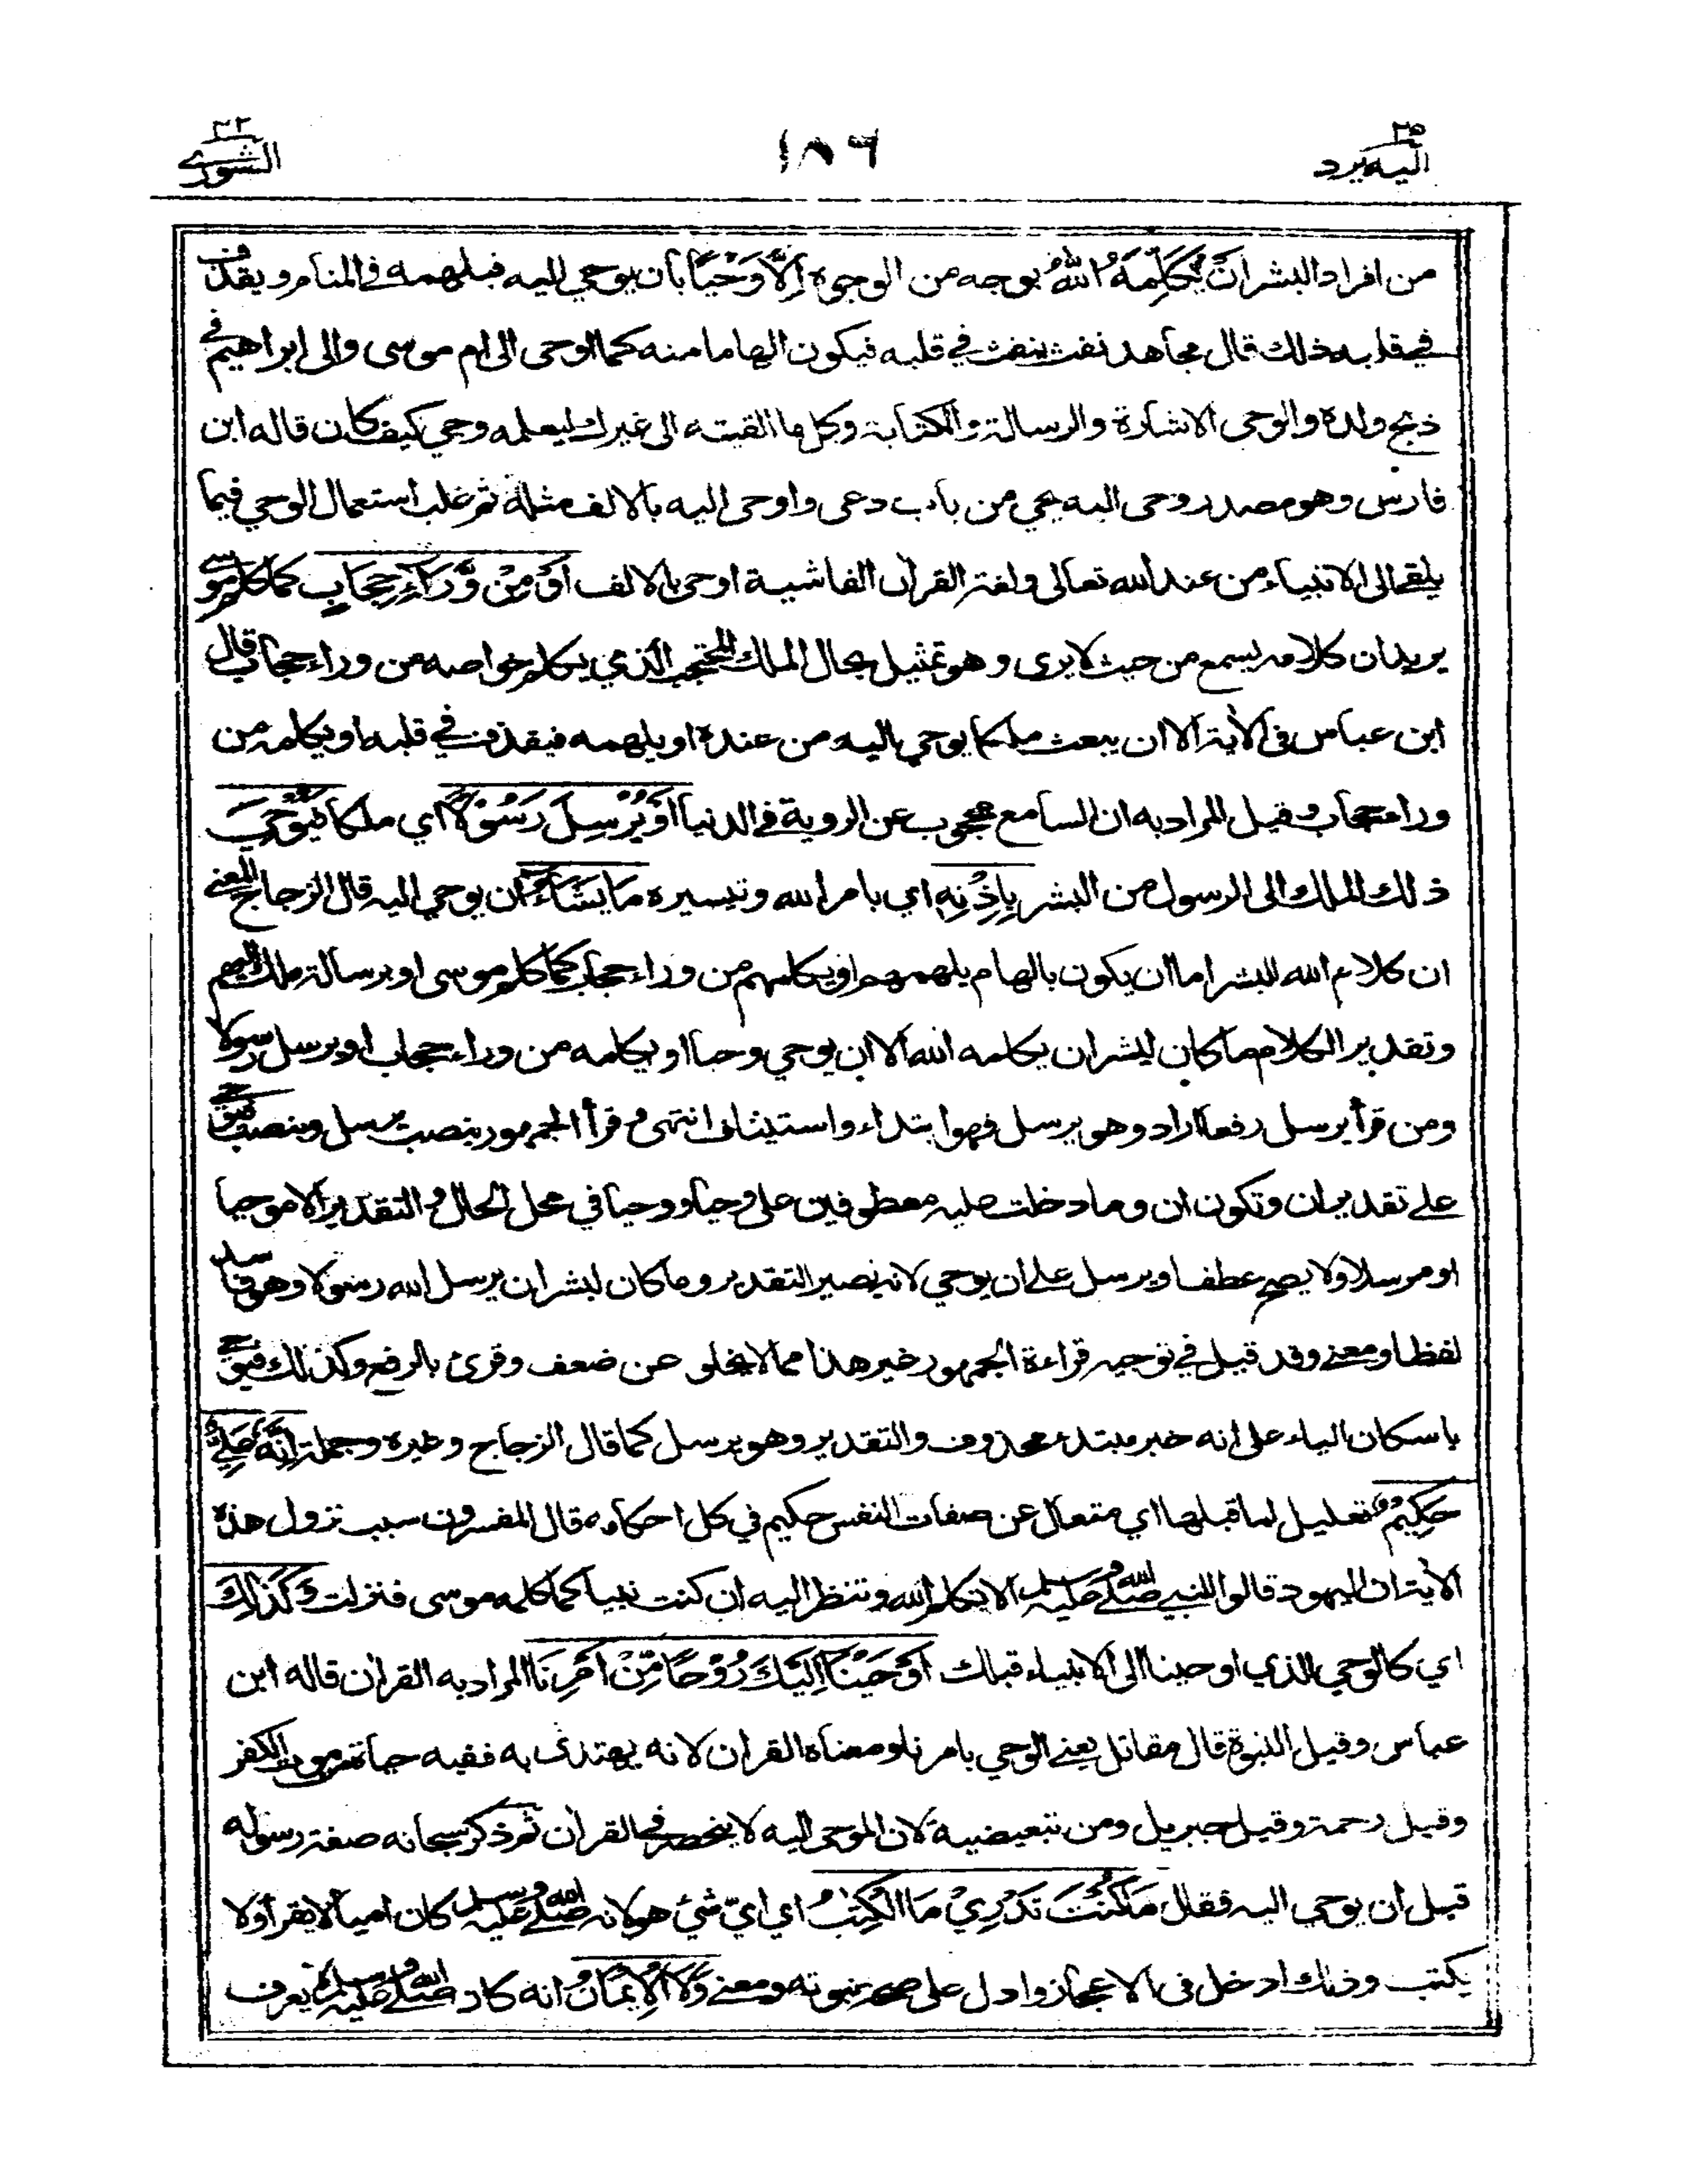 ٢٥
اليه يرد
١٨٦
٤٢
الشورى
من افراد البشر اَنْ يُّكَلِّمَهُ اللّٰهُ بوجه من الوجوه اِلَّا وَحْيًا بأن يوحي اليه فيلهمه في المنام ويقذف
في قلبه ذلك قال مجاهد نفث ينفث في قلبه فيكون الهاما منه كما اوحى الى ام موسى والى ابراهيم في
ذبح ولده والوحى الاشارة والرسالة والكتابة وكل ما القيته الى غيرك ليعلمه وحي كيف كان قاله ابن
فارس وهو مصدر وحى اليه يحي من باب دعى واوحى اليه بالالف مثله ثم غلب استعمال الوحي فيما
يلقى الى الانبياء من عند الله تعالى ولغة القران الفاشية اوحى بالالف اَوْ مِنْ وَّرَآءِ حِجَابٍ كما كلم موسى
يريد ان كلامه يسمع من حيث لا يرى وهو تمثيل بحال الملك المحتجب الذي يكلم خواصه من وراء حجاب قال
ابن عباس فى الأية الا ان يبعث ملكا يوحي اليه من عنده او يلهمه فيقذف في قلبه او يكلمه من
وراء حجاب وقيل المراد به ان السامع محجوب عن الروية في الدنيا اَوْ يُرْسِلَ رَسُوْلًا اي ملكا فَيُوْحِيَ
ذلك الملك الى الرسول من البشر بِاِذْنِهٖ اي بامر الله وتيسيره مَا يَشَآءُ ان يوحي اليه قال الزجاج المعنى
ان كلام الله للبشر اما ان يكون بالهام يلهمهم او يكلمهم من وراء حجاب كما كلم موسى او برسالة ملك اليهم
وتقدير الكلام ما كان لبشر ان يكلمه الله الا ان يوحي وحيا او يكلمه من وراء حجاب او يرسل رسولا
ومن قرأ يرسل رفعا اراد وهو يرسل فهو ابتداء واستيناف انتهى وقرأ الجمهور بنصب يرسل وبنصب فيوحي
على تقدير ان وتكون ان وما دخلت عليه معطوفين على وحيا ووحيا في محل الحال والتقدير الا موحيا
او مرسلا ولا يصح عطف او يرسل على ان يوحي لانه يصير التقدير وما كان لبشر ان يرسل الله رسولا وهو فاسد
لفظا ومعنى وقد قيل في توجيه قراءة الجمهور غير هذا مما لا يخلو عن ضعف وقرئ بالرفع وكذلك فيوحي
باسكان الياء على انه خبر مبتدء محذوف والتقدير وهو يرسل كما قال الزجاج وغيره وجملة اِنَّهٗ عَلِيٌّ
حَكِيْمٌ تعليل لما قبلها اي متعال عن صفات النقص حكيم في كل احكامه قال المفسرون سبب نزول هذه
الأية ان اليهود قالوا للنبي صلى الله عليه وسلم الا تكلم الله وتنظر اليه ان كنت نبيا كما كلمه موسى فنزلت وَكَذٰلِكَ
اي كالوحي الذي اوحينا الى الانبياء قبلك اَوْحَيْنَآ اِلَيْكَ رُوْحًا مِّنْ اَمْرِنَا المراد به القران قاله ابن
عباس وقيل النبوة قال مقاتل يعني الوحي بامرنا ومعناه القران لانه يهتدى به ففيه حياة من موت الكفر
وقيل رحمة وقيل جبريل ومن تبعيضية لان الموحى اليه لا ينحصر في القران ثم ذكر سبحانه صفة رسوله
قبل ان يوحى اليه فقال مَا كُنْتَ تَدْرِيْ مَا الْكِتٰبُ اي ايّ شئ هو لانه صلى الله عليه وسلم كان اميا لا يقرأ ولا
يكتب وذلك ادخل فى الاعجاز وادل على صحة نبوته ومعنى وَلَا الْاِيْمَانُ انه كان صلى الله عليه وسلم لا يعرف